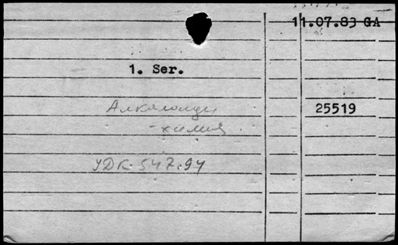 11.07.83 GA
1. Ser.
Алкалоиды 25519
-химия
УДК 547.94